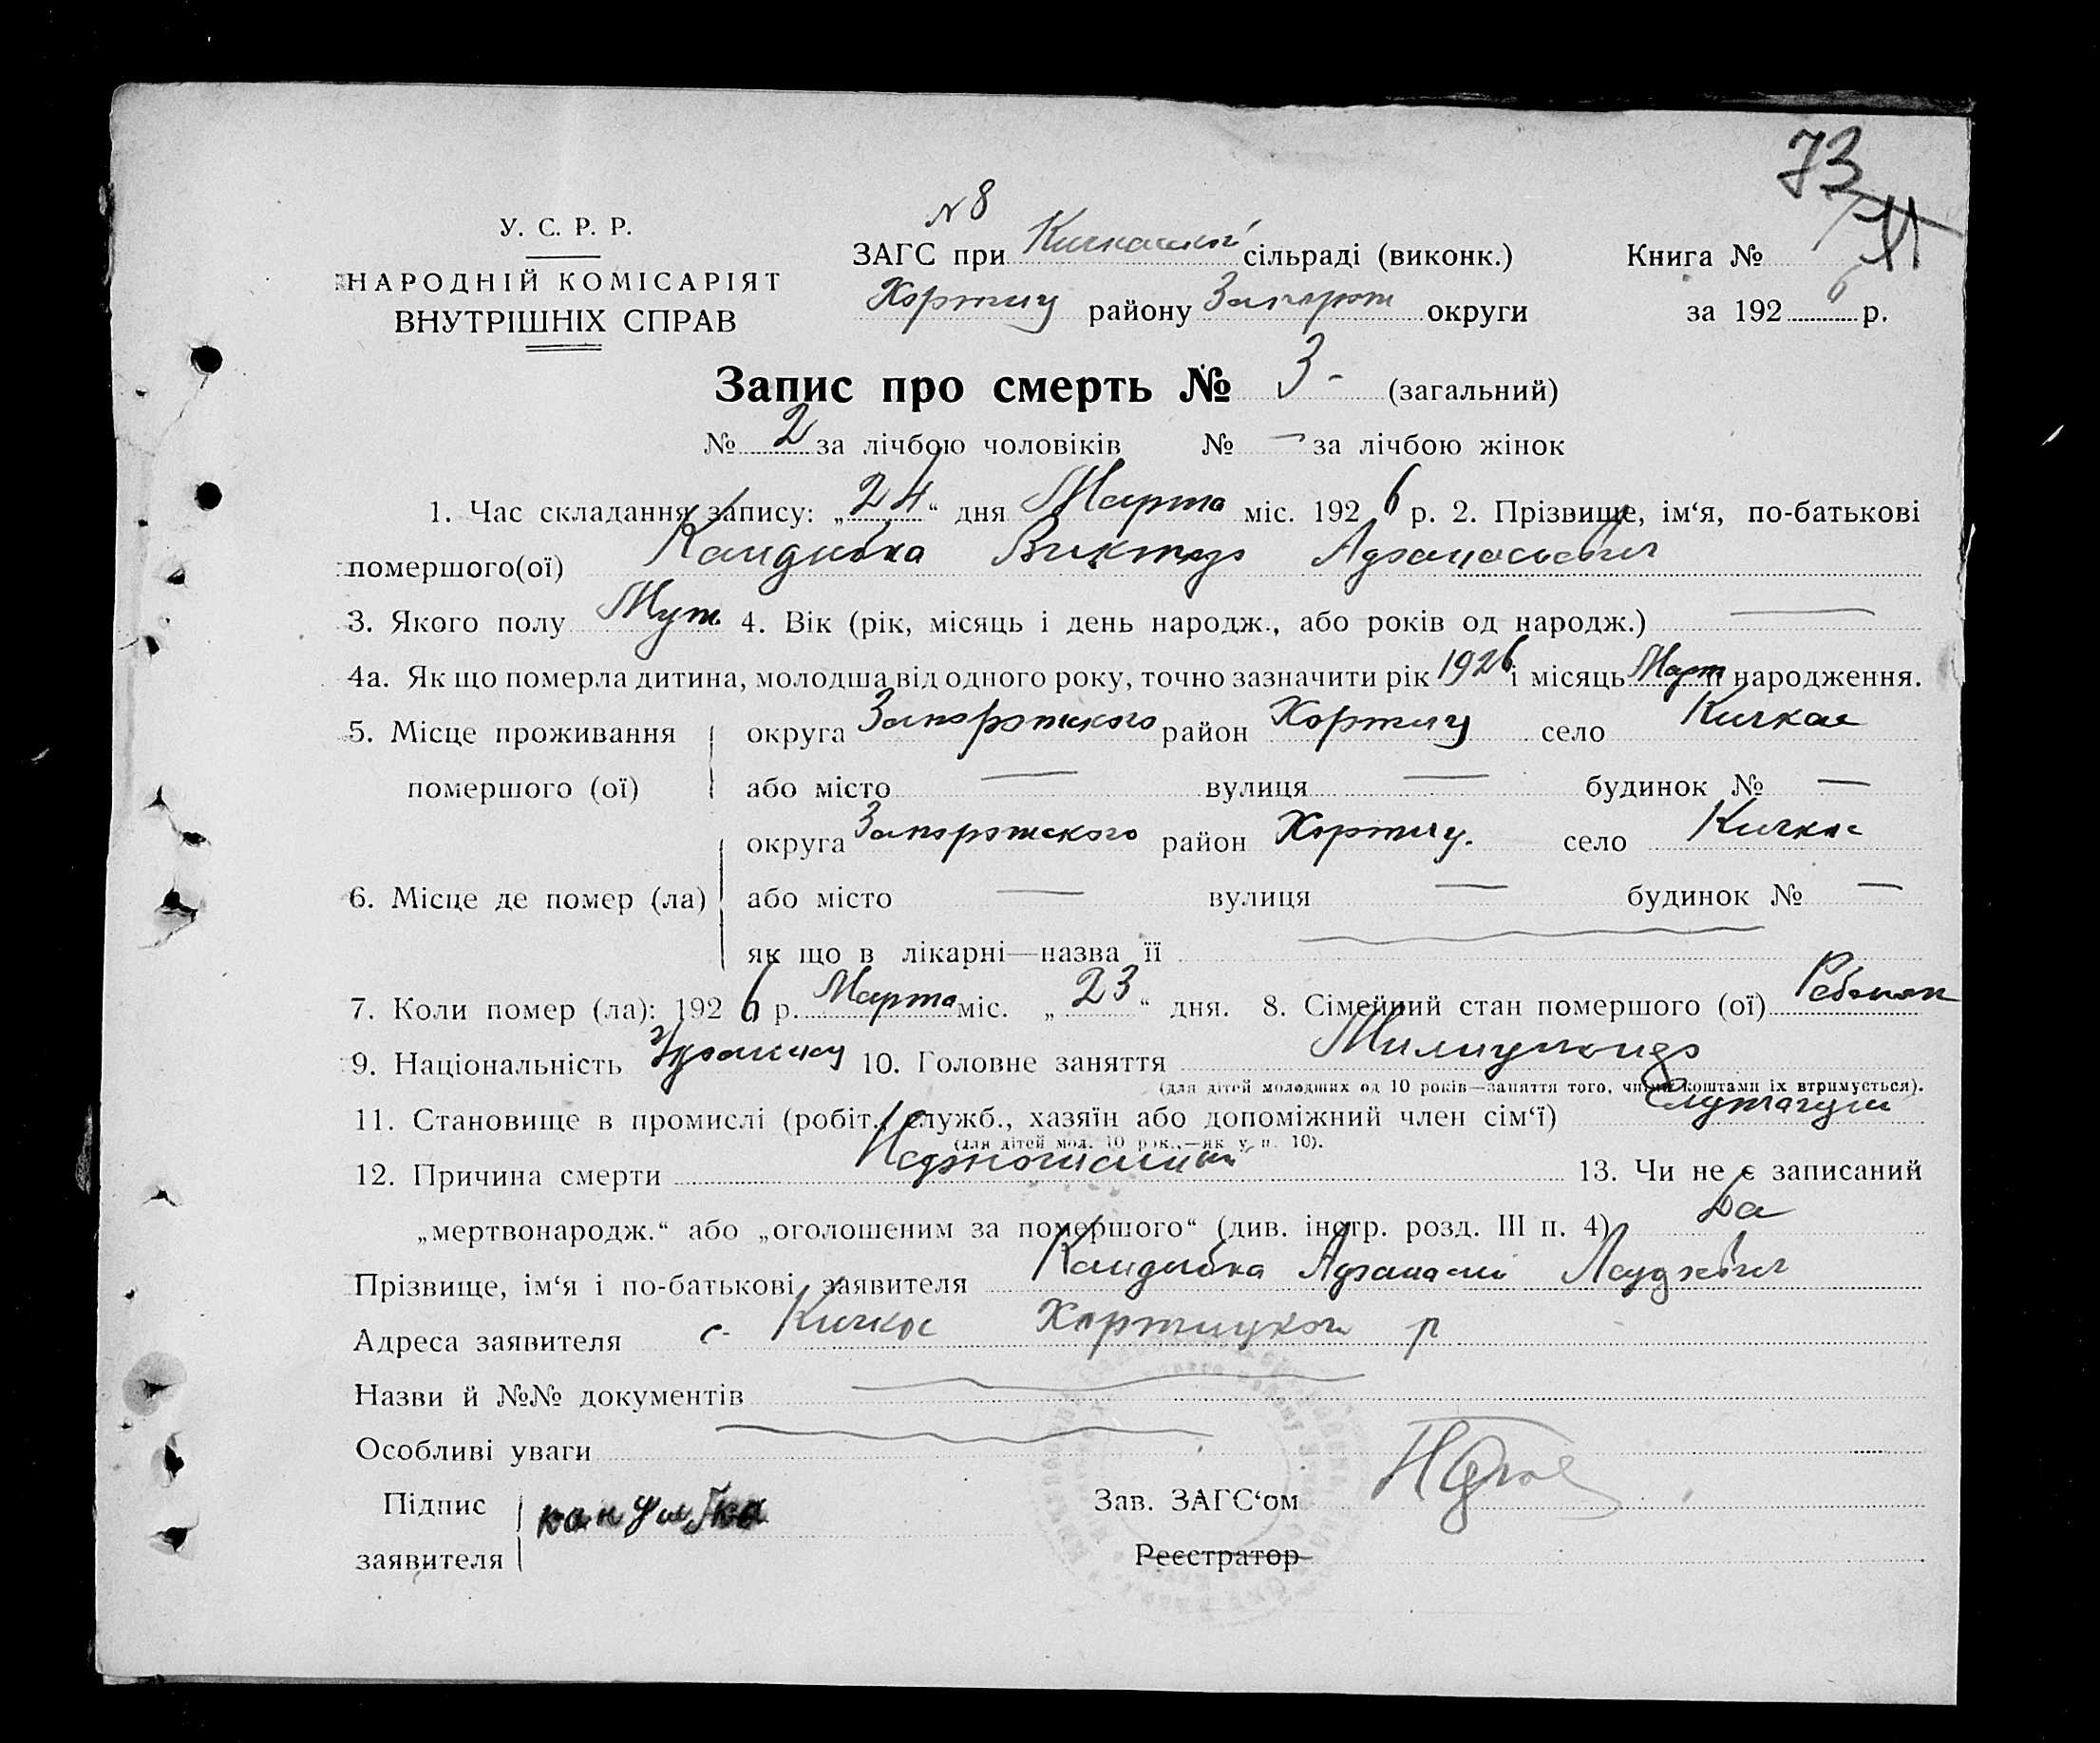 73
N 8
У. С. Р. Р.
НАРОДНІЙ КОМІСАРІЯТ
ВНУТРІШНІХ СПРАВ
ЗАГС при Кичкаської сільраді (виконк.)
Хортиц району Запорож округи
Книга №
за 1926 р.
Запис про смерть № 3 - (загальний)
№ 2 за лічбою чоловіків № — за лічбою жінок
1. Час складання запису: „24“ дня Марта міс. 1926 р. 2. Прізвище, ім‘я, по-батькові
помершого(ої) Кандиба Виктор Афанасьевич
3. Якого полу Муж. 4. Вік (рік, місяць і день народж., або років од народж.) —
4а. Як що померла дитина, молодша від одного року, точно зазначити рік 1926 і місяць Март народження.
5. Місце проживання помершого (ої) округа Запорожского район Хортиц село Кичкас
або місто — вулиця — будинок № —
6. Місце де помер (ла) округа Запорожского район Хортиц. село Кичкас
або місто — вулиця — будинок № —
як що в лікарні—назва її
7. Коли помер (ла): 1926 р. Марта міс. „23“ дня. 8. Сімейний стан помершого (ої) Ребенок
9. Національність 10. Головне заняття Милиционер
(для дітей молодших од 10 років—заняття того, чиїми коштами їх втримується).
11. Становище в промислі (робіт., служб., хазяїн або допоміжний член сім‘ї) Служащий
(для дітей мол. 10 рок.,—як у п. 10).
12. Причина смерти 13. Чи не є записаний
„мертвонародж.“ або „оголошеним за помершого“ (див. інстр. розд. III п. 4) Да
Прізвище, ім‘я і по-батькові заявителя Кандиба Афанасий
Адреса заявителя с. Кичкас Хортицкого р
Назви й №№ документів
Особливі уваги
Підпис заявителя Зав. ЗАГС‘ом
Реєстратор